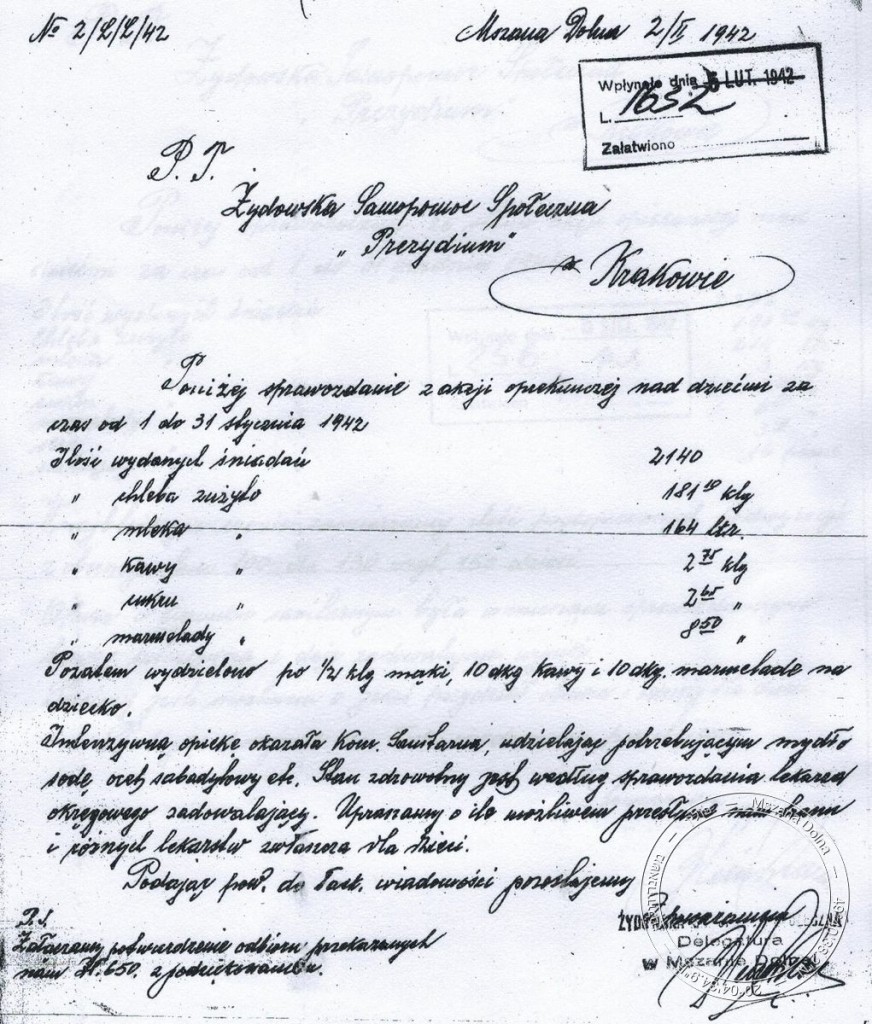 № 2/L/L/42
Mszana Dolna 2/II 1942
Wpłynęło dnia 5 LUT. 1942
L. 1632
Załatwiono
P. T.
Żydowska Samopomoc Społeczna
„Prezydium"
w Krakowie
Poniżej sprawozdanie z akcji opiekunczej nad dziećmi za
czas od 1 do 31 stycznia 1942
Ilość wydanych śniadań 2140
" chleba zużyto 181 10 klg
" mleka " 164 ltr.
" kawy " 2 75 klg
" cukru " 2 65 "
" marmelady " 8 50 "
Pozatem wydzielono po 1/2 klg mąki, 10 dkg kawy i 10 dkg. marmelade na
dziecko.
Intenzywną opiekę okazała Kom. Sanitarna, udzielając potrzebującym mydło
sodę, ocet sabadylowy etc. Stan zdrowotny jest według sprawozdania lekarza
okręgowego zadowalający. Upraszamy o ile możliwem przesłanie nam tranu
i różnych lekarstw zwłaszcza dla dzieci.
Podając pow. do łask. wiadomości pozostajemy
Z poważaniem
P. S.
Załączamy potwierdzenie odbioru przekazanych
nam Zł. 650. z podziękowaniem.
Delegatura
w Mszanie Dolnej
Mszana Dolna